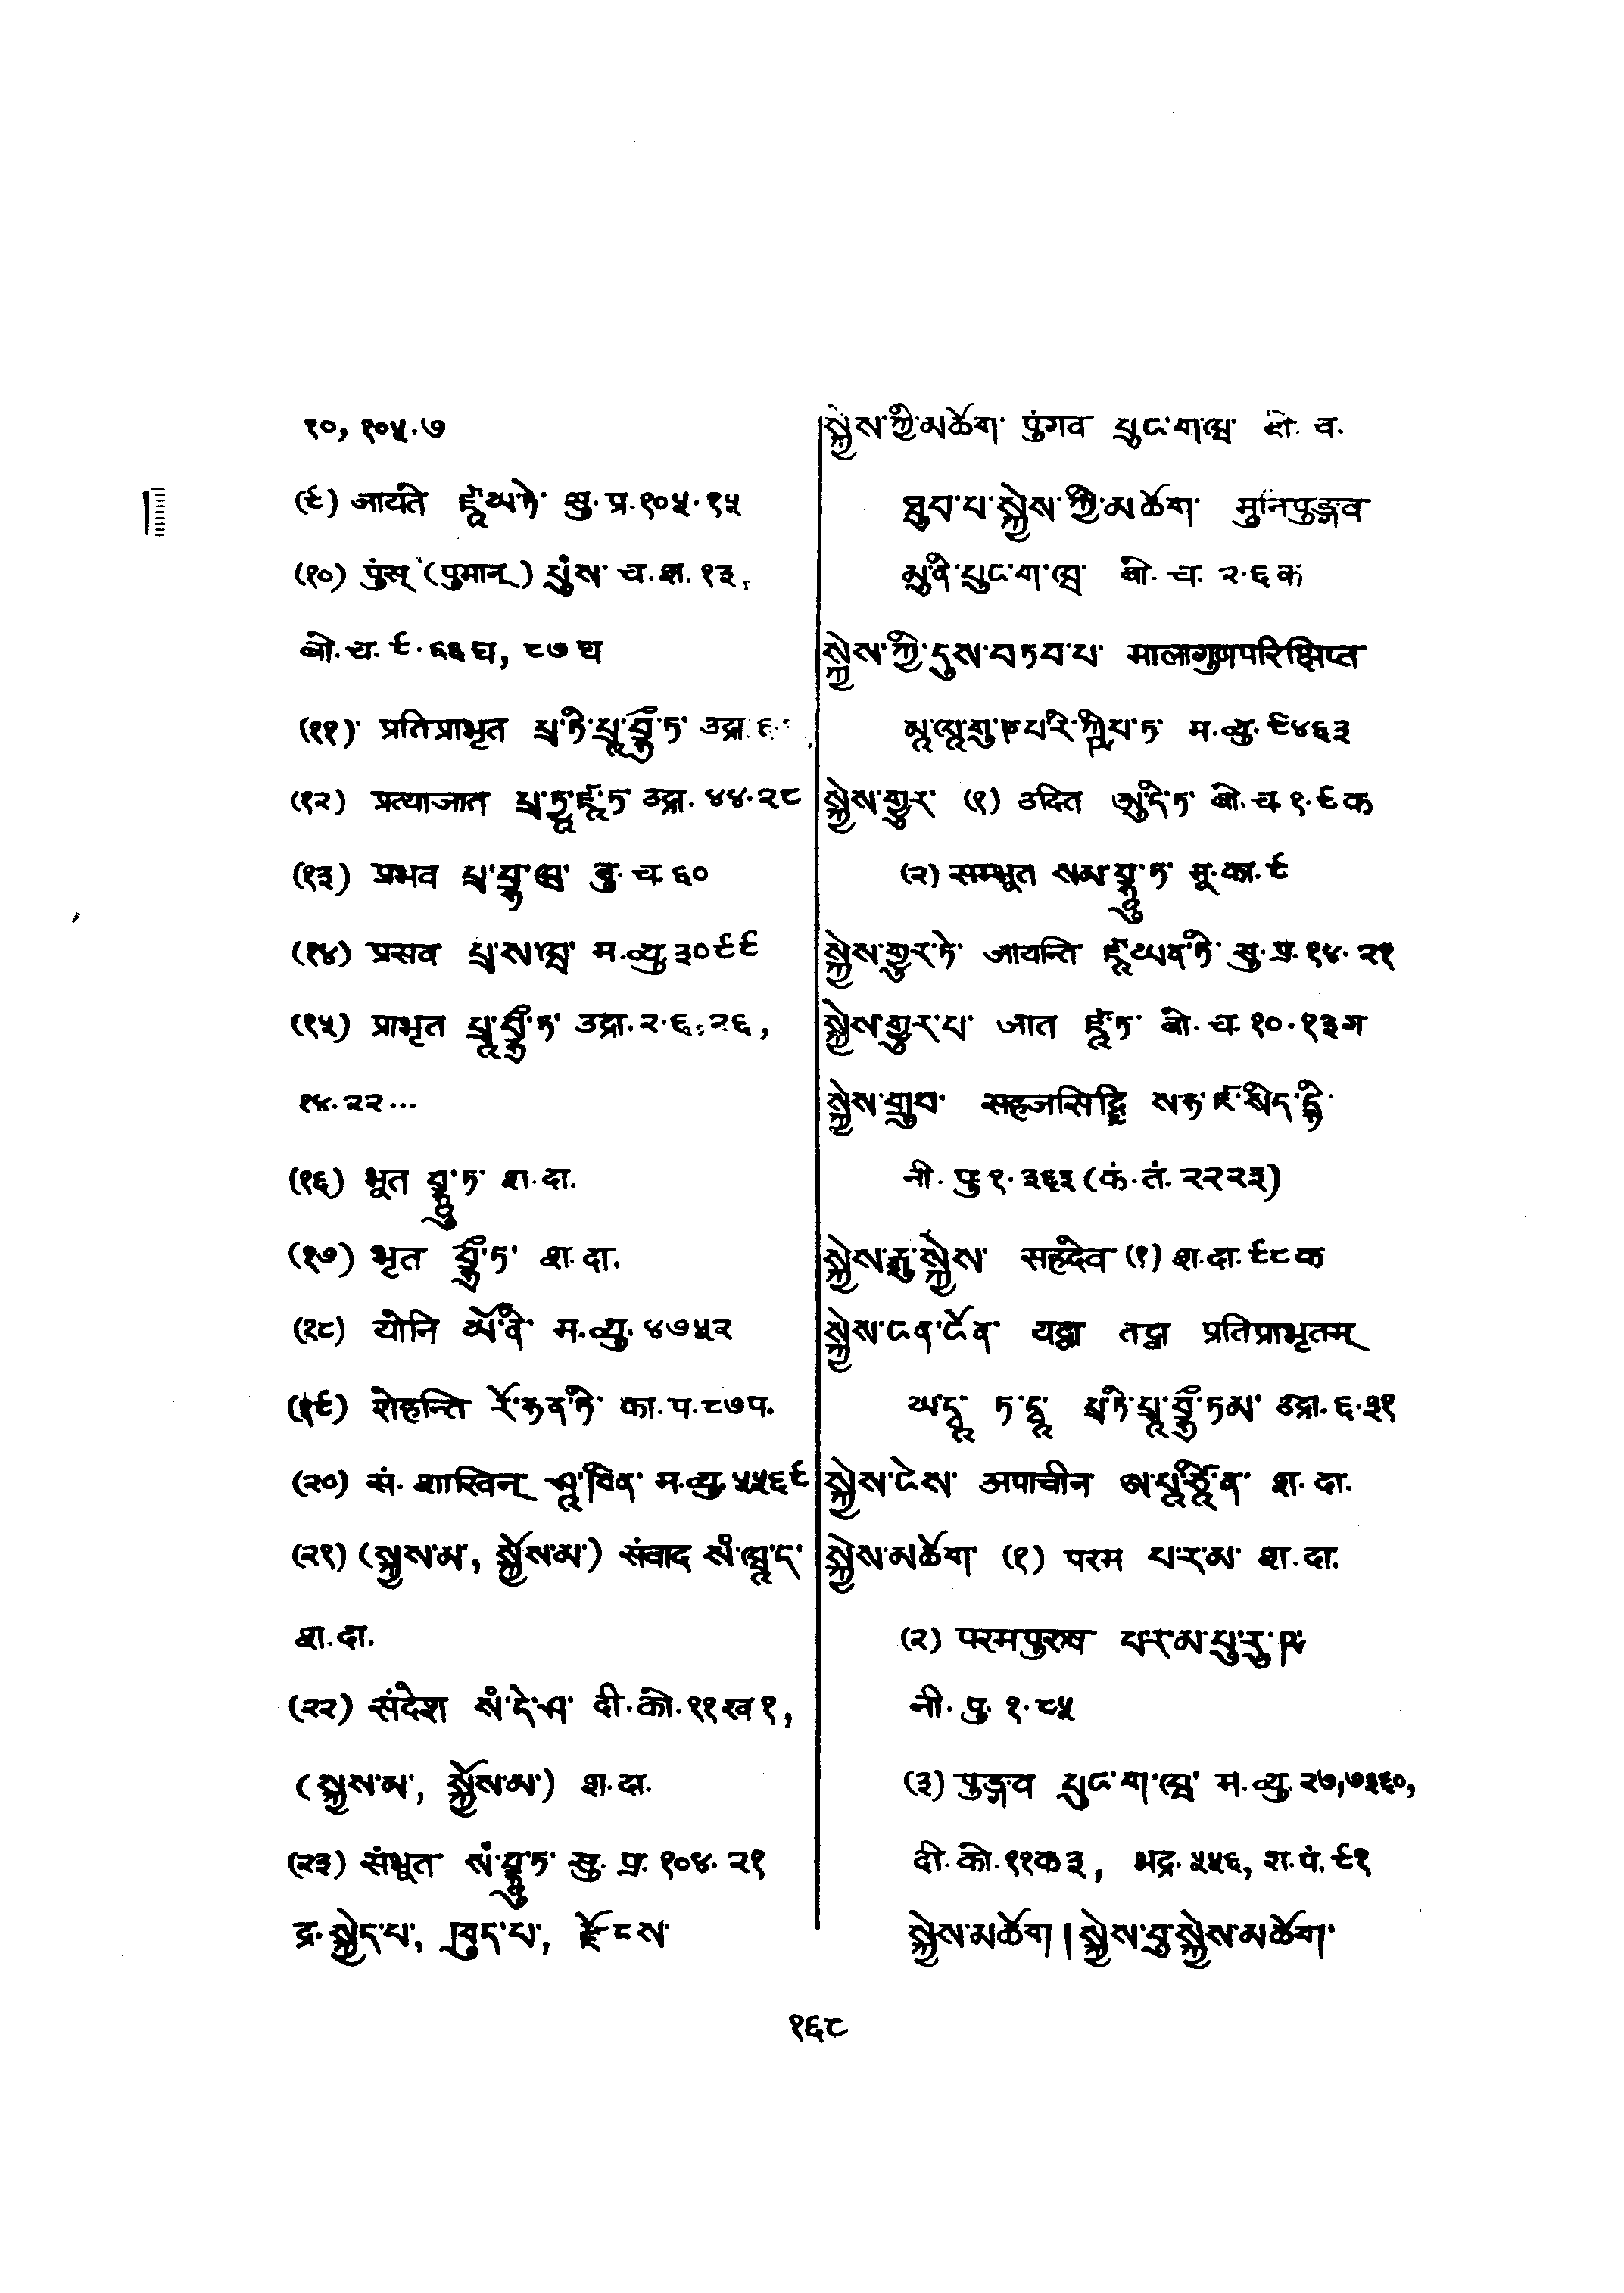 १०, १०५.७
(९) जायते ཛཱ་ཡ་ཏེ་ सु. प्र. १०५.१५
(१०) पुंस् (पुमान्) པུཾས་ च. श. १३,
बो. च. ९. ६६ घ, ८७ घ
(११) प्रतिप्राभृत པྲ་ཏི་པྲཱ་བྷྲྀ་ཏ་ उद्रा. ६.
(१२) प्रत्याजात པྲ་ཏྱཱ་ཛཱ་ཏ་ उद्रा. ४४.२८
(१३) प्रभव པྲ་བྷ་ཝ་ बु. च. ६०
(१४) प्रसव པྲ་ས་ཝ་ म. व्यु. ३०९९
(१५) प्राभृत པྲཱ་བྷྲྀ་ཏ་ उद्रा. २.६.२६,
१४.२२...
(१६) भूत བྷཱུ་ཏ་ श. दा.
(१७) भृत བྷྲྀ་ཏ་ श. दा.
(१८) योनि ཡོ་ནི་ म. व्यु. ४७५२
(१९) रोहन्ति རོ་ཧན་ཏི་ का. प. ८७प.
(२०) सं. शाखिन् ཤཱ་ཁིན་ म. व्यु. ५५६९
(२१) (སྐྱས་མ་, སྐྱོས་མ་) संवाद སཾ་ཝཱ་ད་
श. दा.
(२२) संदेश སཾ་དེ་ཤ་ दी. को. ११ख१,
(སྐྱས་མ་, སྐྱོས་མ་) श. दा.
(२३) संभूत སཾ་བྷཱུ་ཏ་ सु. प्र. १०४.२१
द्र. སྐྱེད་པ་, ཁྲུད་པ་, རྫོངས་
སྐྱེས་ཀྱི་མཆོག་ पुंगव པུང་ག་ཝ་ बो. च.
ཐུབ་པ་སྐྱེས་ཀྱི་མཆོག་ मुनिपुङ्गव
མུ་ནི་པུང་ག་ཝ་ बो. च. २.६क
སྐྱེས་ཀྱི་དུས་བཏབ་པ་ मालागुणपरिक्षिप्त
མཱ་ལཱ་གུ་ཎ་པ་རི་ཀྵིཔ་ཏ་ म. व्यु. ९४६३
སྐྱེས་གྱུར་ (१) उदित ཨུ་དི་ཏ་ बो. च. १.९क
(२) सम्भूत སམ་བྷཱུ་ཏ་ मू. का. ९
སྐྱེས་གྱུར་ཏེ་ जायन्ति ཛཱ་ཡན་ཏི་ सु. प्र. १४.२१
སྐྱེས་གྱུར་པ་ जात ཛཱ་ཏ་ बो. च. १०.१३ग
སྐྱེས་གྲུབ་ सहजसिद्धि ས་ཧ་ཛ་སིད་དྷི་
नी. पु १.३६३ (कं. तं. २२२३)
སྐྱེས་རྒུ་སྐྱེས་ सहदेव (१) श. दा. ९८क
སྐྱེས་ངན་ངོན་ यद्वा तद्वा प्रतिप्राभृतम्
ཡ་དྭཱ་ ཏ་དྭཱ་ པྲ་ཏི་པྲཱ་བྷྲྀ་ཏམ་ उद्रा. ६.३१
སྐྱེས་ངེས་ अपाचीन ཨ་པཱ་ཙཱི་ན་ श. दा.
སྐྱེས་མཆོག་ (१) परम པ་ར་མ་ श. दा.
(२) परमपुरुष པ་ར་མ་པུ་རུ་ཥ
नी. पु. १.८५
(३) पुङ्गव པུང་ག་ཝ་ म. व्यु. २७,७३६०,
दी. को. ११क३, भद्र. ५५६, श. पं. ९१
སྐྱེས་མཆོག།སྐྱེས་བུ་སྐྱེས་མཆོག་
१६८